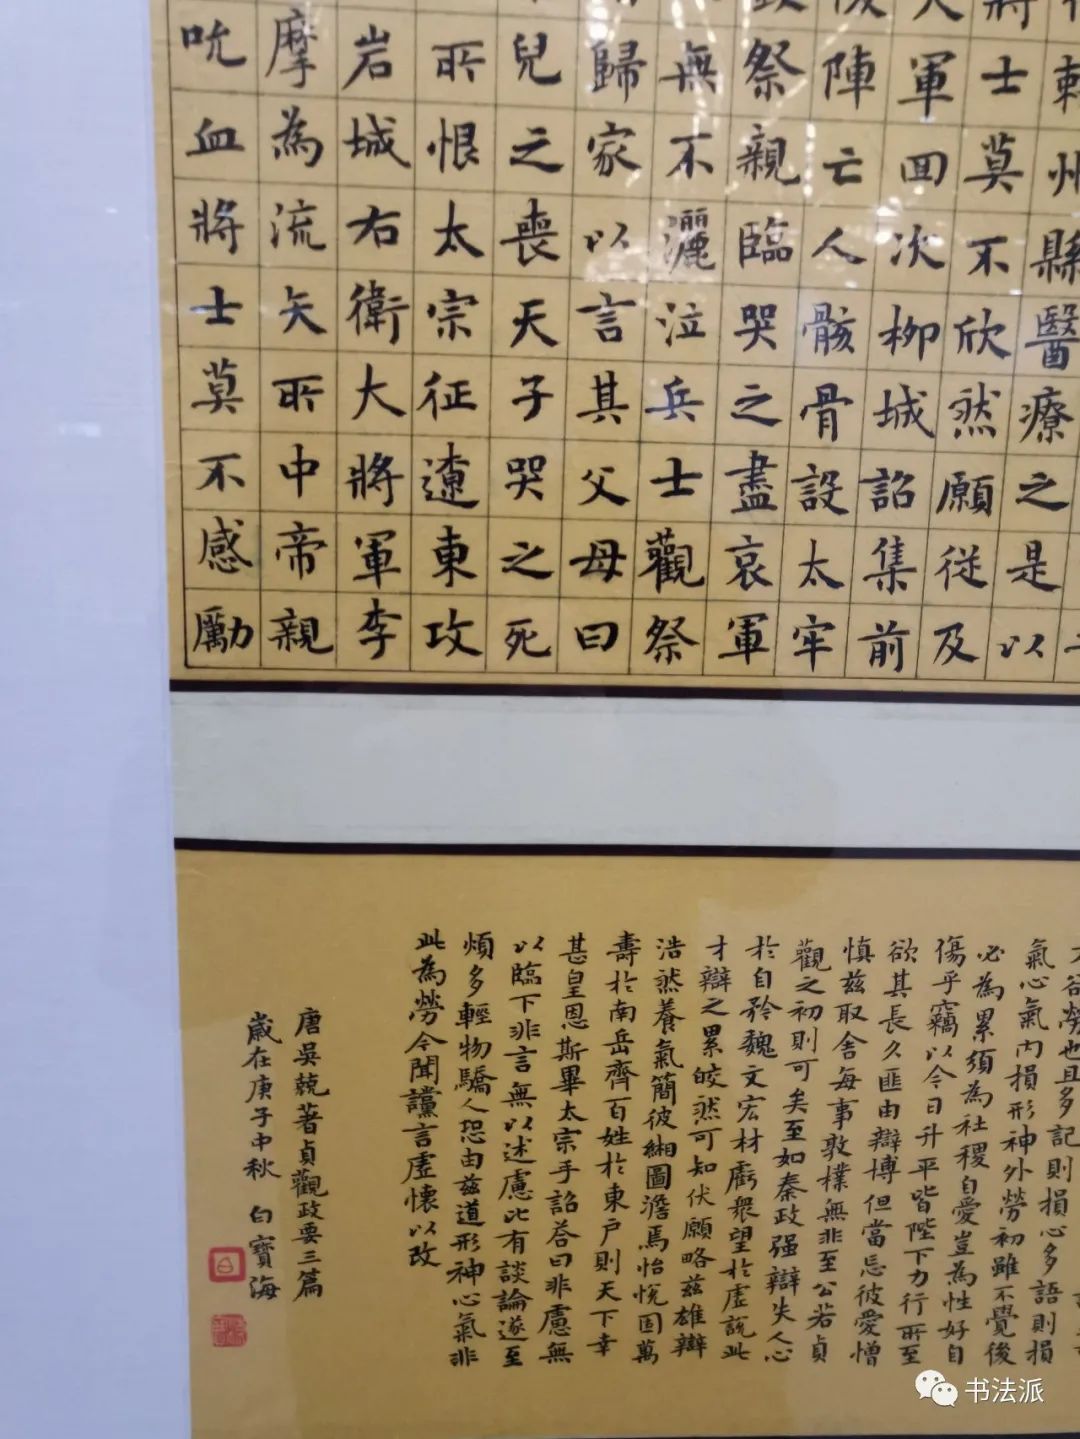 敕州縣醫療之是以
將士莫不欣然願從及
大軍回次柳城詔集前
後陣亡人骸骨設太牢
致祭親臨哭之盡哀軍
無不灑泣兵士觀祭
歸家以言其父母曰
兒之喪天子哭之死
所恨太宗征遼東攻
岩城右衛大將軍李
摩為流矢所中帝親
吮血將士莫不感勵
氣心氣內損形神外勞初雖不覺後
必為累須為社稷自愛豈為性好自
傷乎竊以今日升平皆陛下力行所至
欲其長久匪由辯博但當忘彼愛憎
慎茲取舍每事敦樸無非至公若貞
觀之初則可矣至如秦政强辯失人心
於自矜魏文宏材虧眾望於虛說此
才辯之累皎然可知伏願略茲雄辯
浩然養氣簡彼緗圖澹焉怡悅固萬
壽於南岳齊百姓於東户則天下幸
甚皇恩斯畢太宗手詔答曰非慮無
以臨下非言無以述慮比有談論遂至
煩多輕物驕人恐由茲道形神心氣非
此為勞今聞讜言虛懷以改
唐吳兢著貞觀政要三篇
歲在庚子中秋 白寶海
书法派